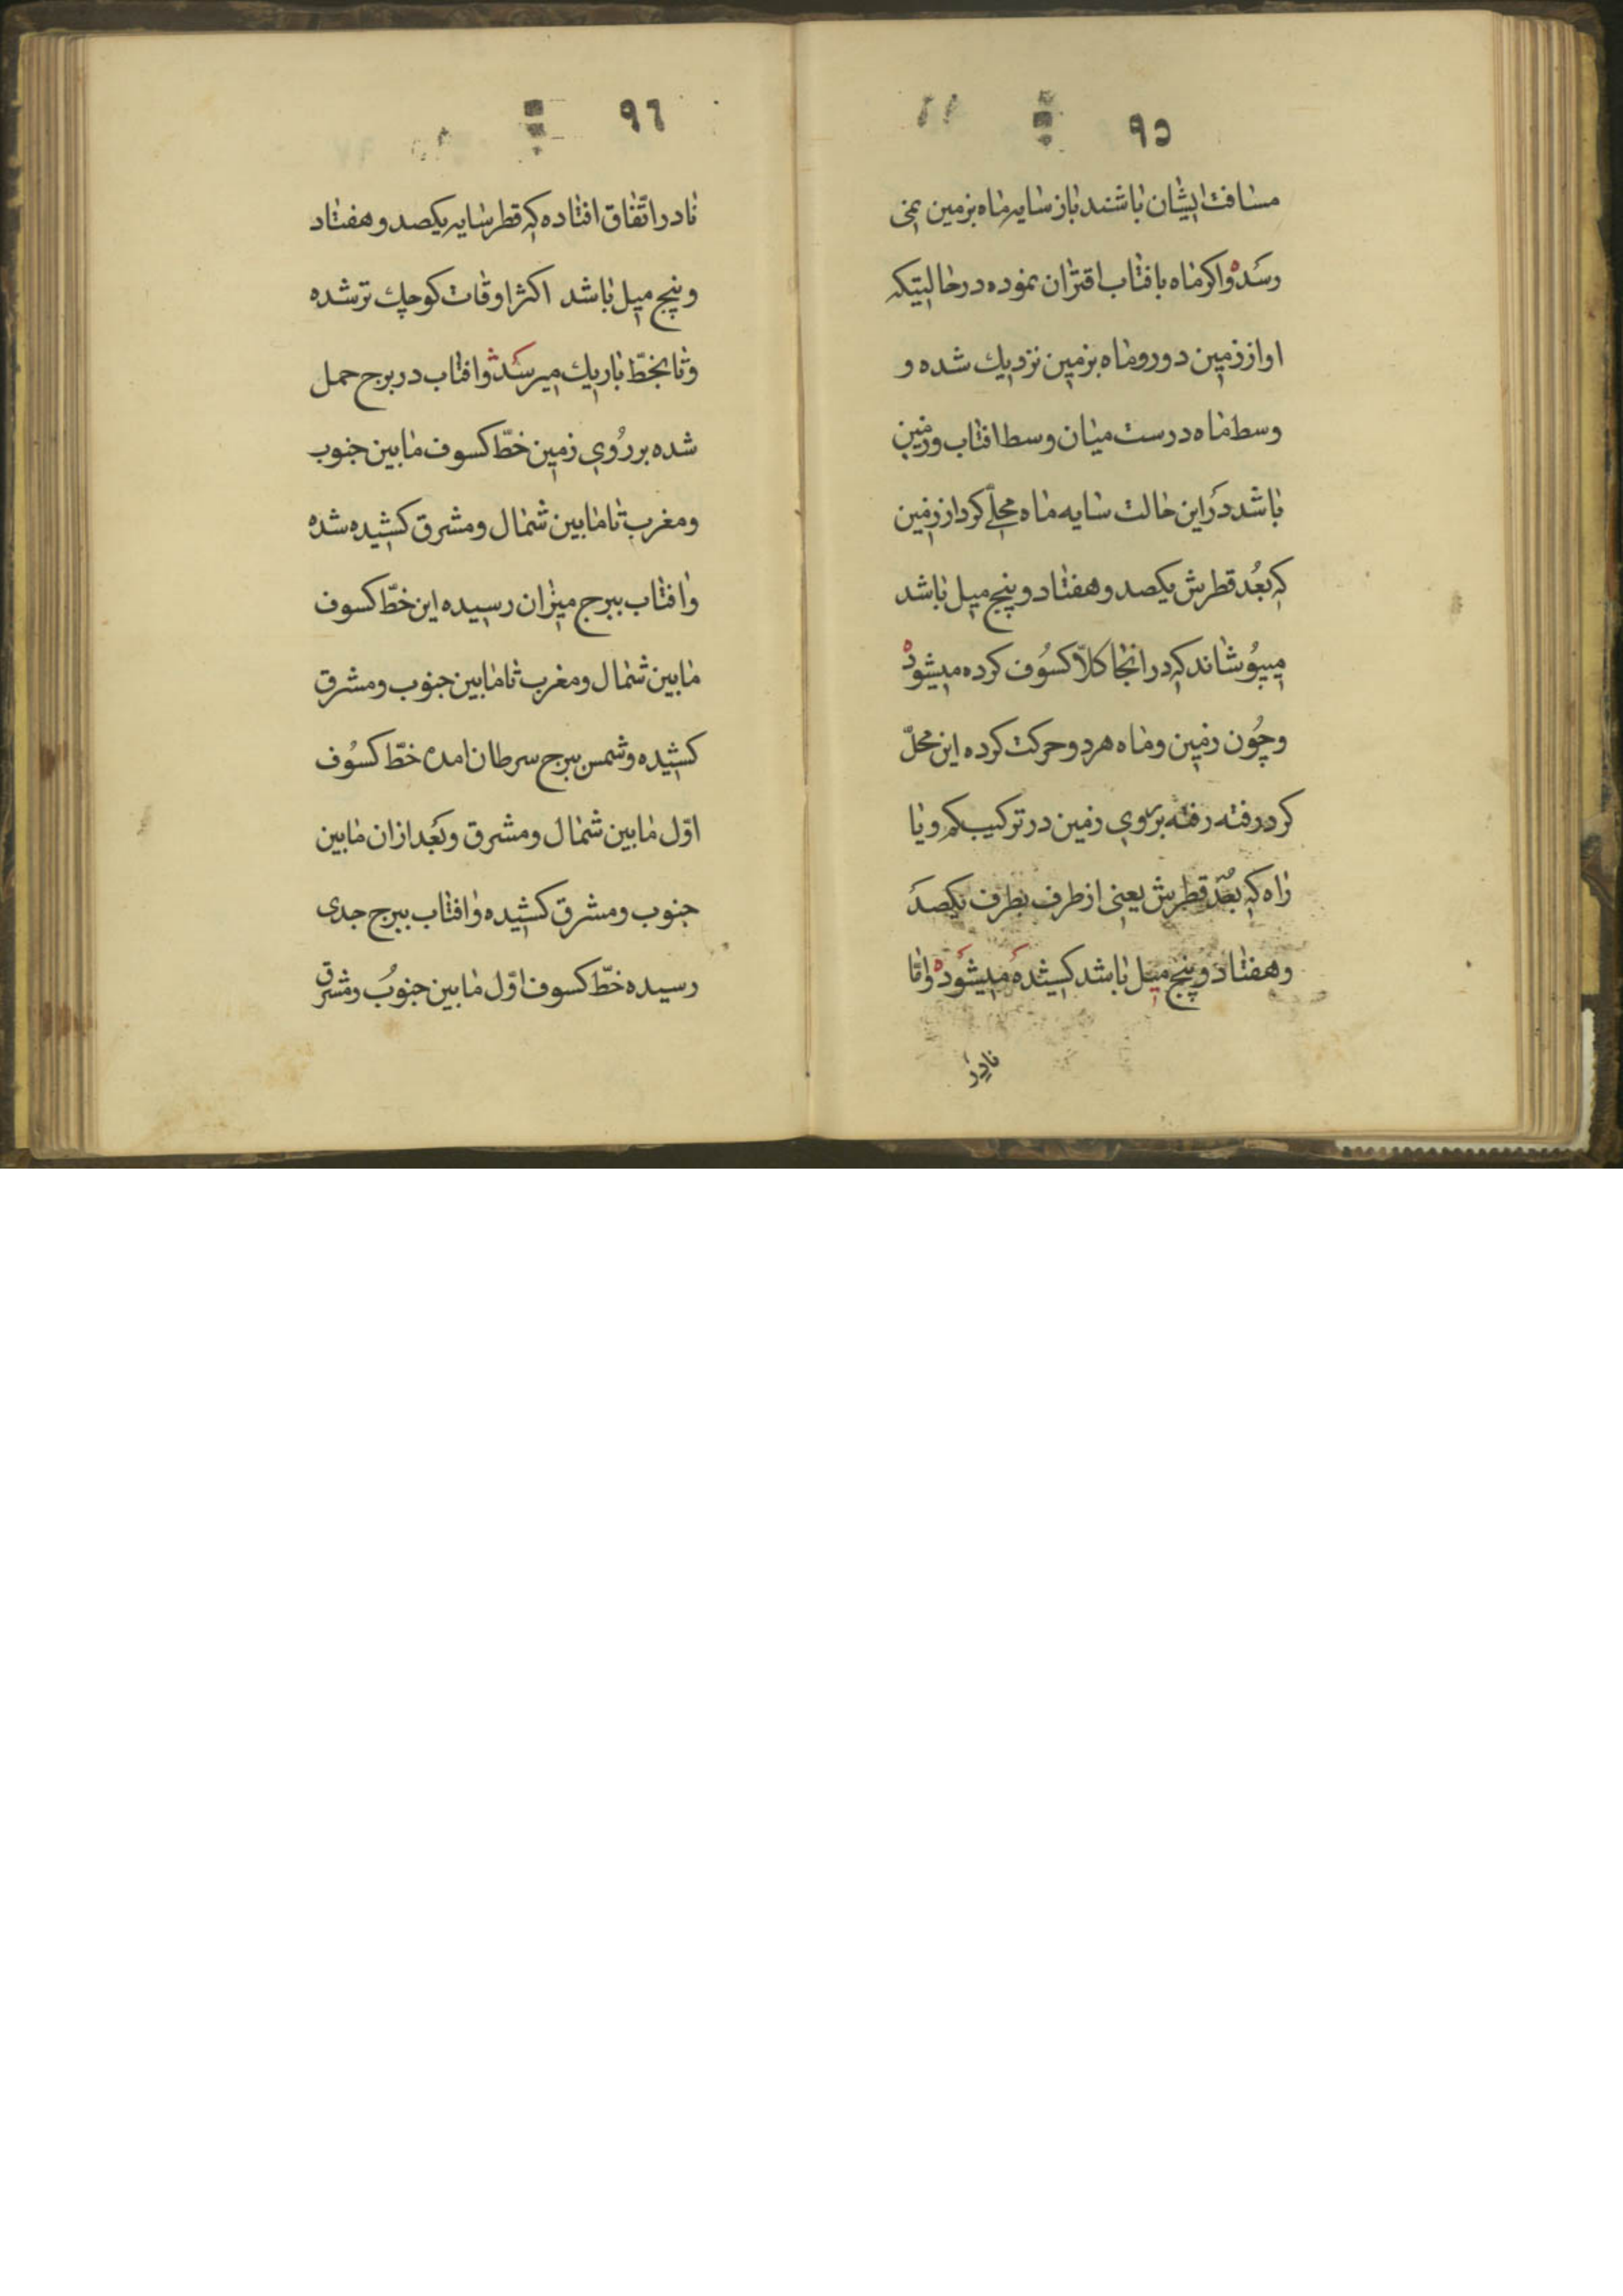 ٩٥
مسافت ایشان باشند باز سایه ماه بزمین نمی
رسَد ه واکر ماه بافتاب اقتران نموده در حالیتیکه
او از زمین دور و ماه بزمین نزدیك شده و
وسط ماه درست میان وسط افتاب و زمین
باشد دَر این حالت سایه ماه محلّے کرد از زمین
که بُعد قطرش یکصد و هفتاد و پنج میل باشد
میپوُشاند که در انجا کلاّ کسُوف کرده میشود ه
و چُون زمین و ماه هر دو حرکت کرده این محلّ
کرد رفته رفته بر روی زمین در ترکیب کمر و یا
راه که بُعد قطرش یعنی از طرف بطرف یکصدَ
و هفتاد و پنج میل باشد کشیدهَ میشوَد ه و امّا
نادِرَ
٩٦
نادر اتّفاق افتاده که قطر سایه یکصد و هفتاد
و پنج میل باشد اکثر اوقات کوچك تر شده
و تا بخطّ باریك میرسَد ه و افتاب در برج حمل
شده بر رُوی زمین خطّ کسوف مابین جنوب
و مغرب تا مابین شمال و مشرق کشیده شده
و افتاب ببرج میزان رسیده این خطّ کسوف
مابین شمال و مغرب تا مابین جنوب و مشرق
کشیده و شمس ببرج سرطان امده خطّ کسُوف
اوّل مابین شمال و مشرق و بَعد از ان مابین
جنوب و مشرق کشیده و افتاب ببرج جدی
رسیده خطّ کسوف اوّل مابین جنوبُ و مشرق